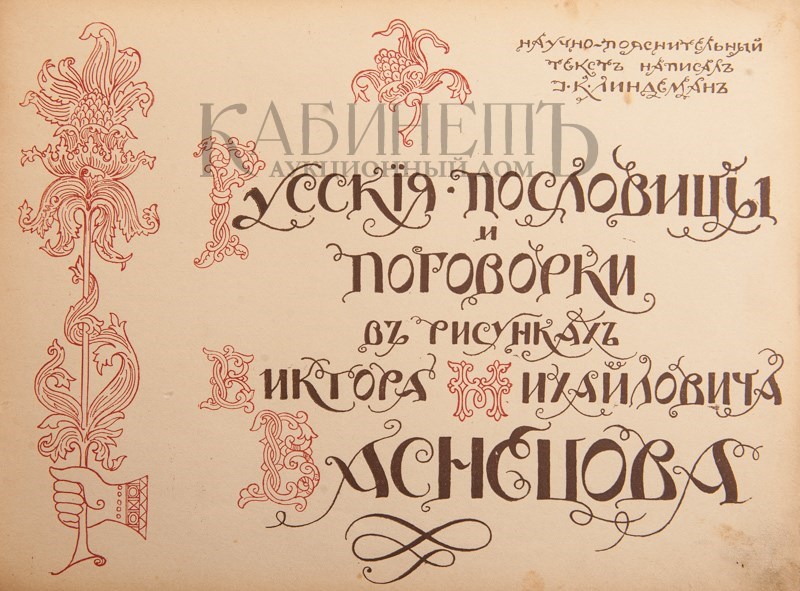 НАУЧНО-ПОЯСНИТЕЛЬНЫЙ
ТЕКСТЪ НАПИСАЛЪ
І. К. ЛИНДЕМАНЪ
КАБИНЕТЪ
АУКЦИОННЫЙ ДОМ
РУССКІЯ · ПОСЛОВИЦЫ
И
ПОГОВОРКИ
ВЪ РИСУНКАХЪ
ВИКТОРА МИХАЙЛОВИЧА
ВАСНЕЦОВА